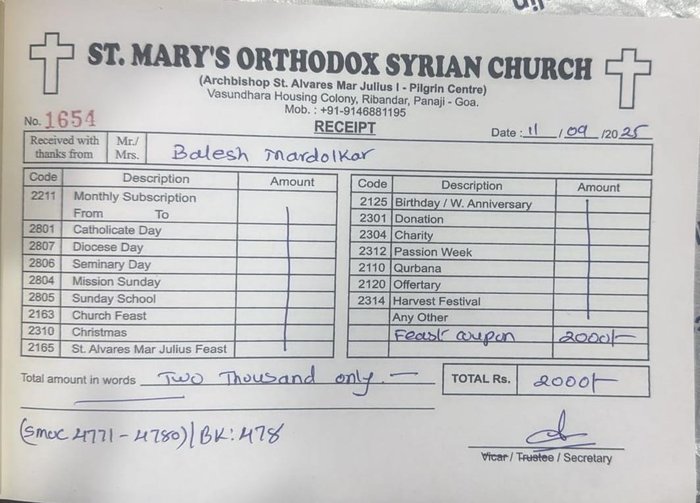 ST. MARY'S ORTHODOX SYRIAN CHURCH
(Archbishop St. Alvares Mar Julius I - Pilgrin Centre)
Vasundhara Housing Colony, Ribandar, Panaji - Goa.
Mob. : +91-9146881195
No. 1654
RECEIPT
Date : 11 / 09 / 2025
Received with thanks from Mr./ Mrs. Balesh Mardolkar
Code Description Amount
2211 Monthly Subscription
From To
2801 Catholicate Day
2807 Diocese Day
2806 Seminary Day
2804 Mission Sunday
2805 Sunday School
2163 Church Feast
2310 Christmas
2165 St. Alvares Mar Julius Feast
Code Description Amount
2125 Birthday / W. Anniversary
2301 Donation
2304 Charity
2312 Passion Week
2110 Qurbana
2120 Offertary
2314 Harvest Festival
Any Other
Feast coupon 2000/-
Total amount in words Two Thousand only. —
TOTAL Rs. 2000/-
(SMOC 4771 - 4780) / BK: 478
Vicar / Trustee / Secretary